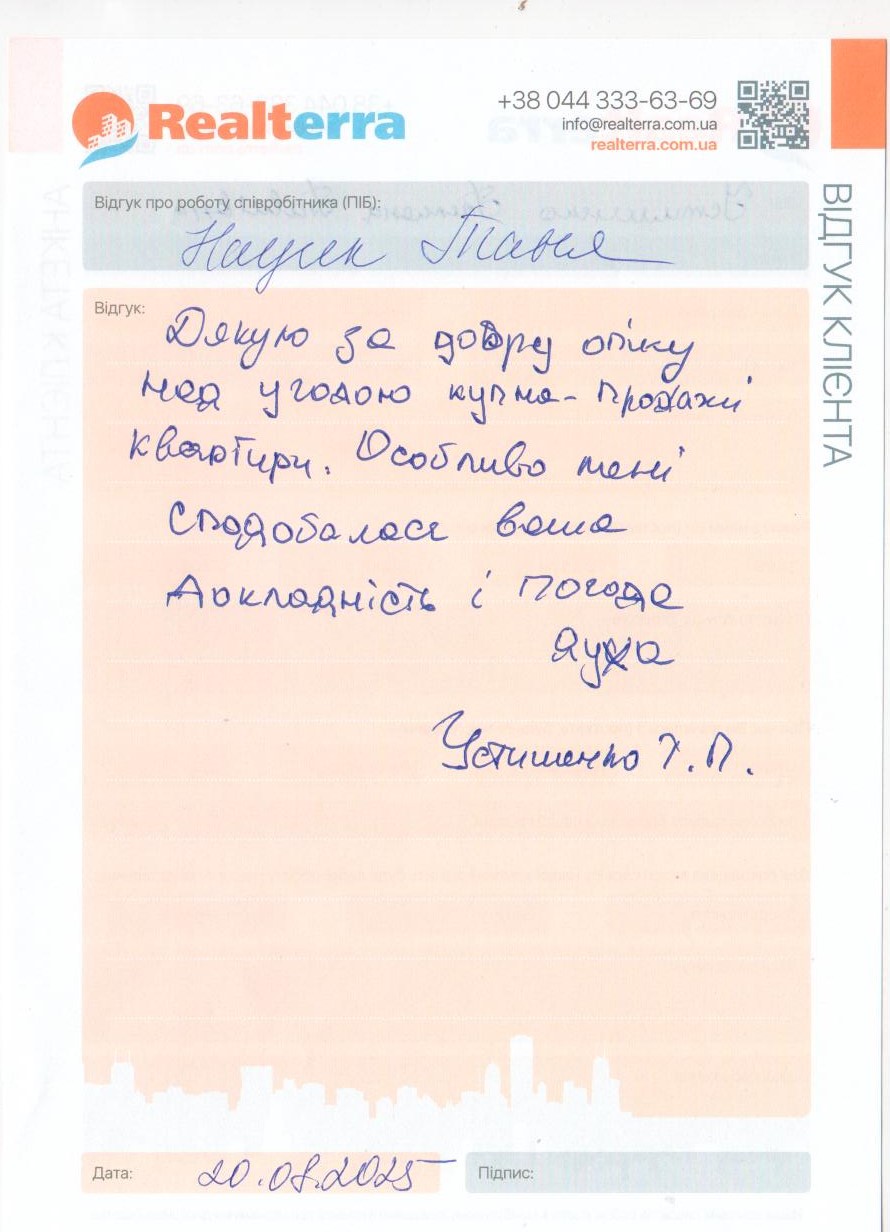 Realterra
+38 044 333-63-69
info@realterra.com.ua
realterra.com.ua
ВІДГУК КЛІЄНТА
Відгук про роботу співробітника (ПІБ):
Нацик Таня
Відгук:
Дякую за добру опіку
над угодою купна-продажі
квартири. Особливо мені
сподобалася ваша
докладність і погода
духа
Устименко Х.П.
Дата: 20.08.2025
Підпис: